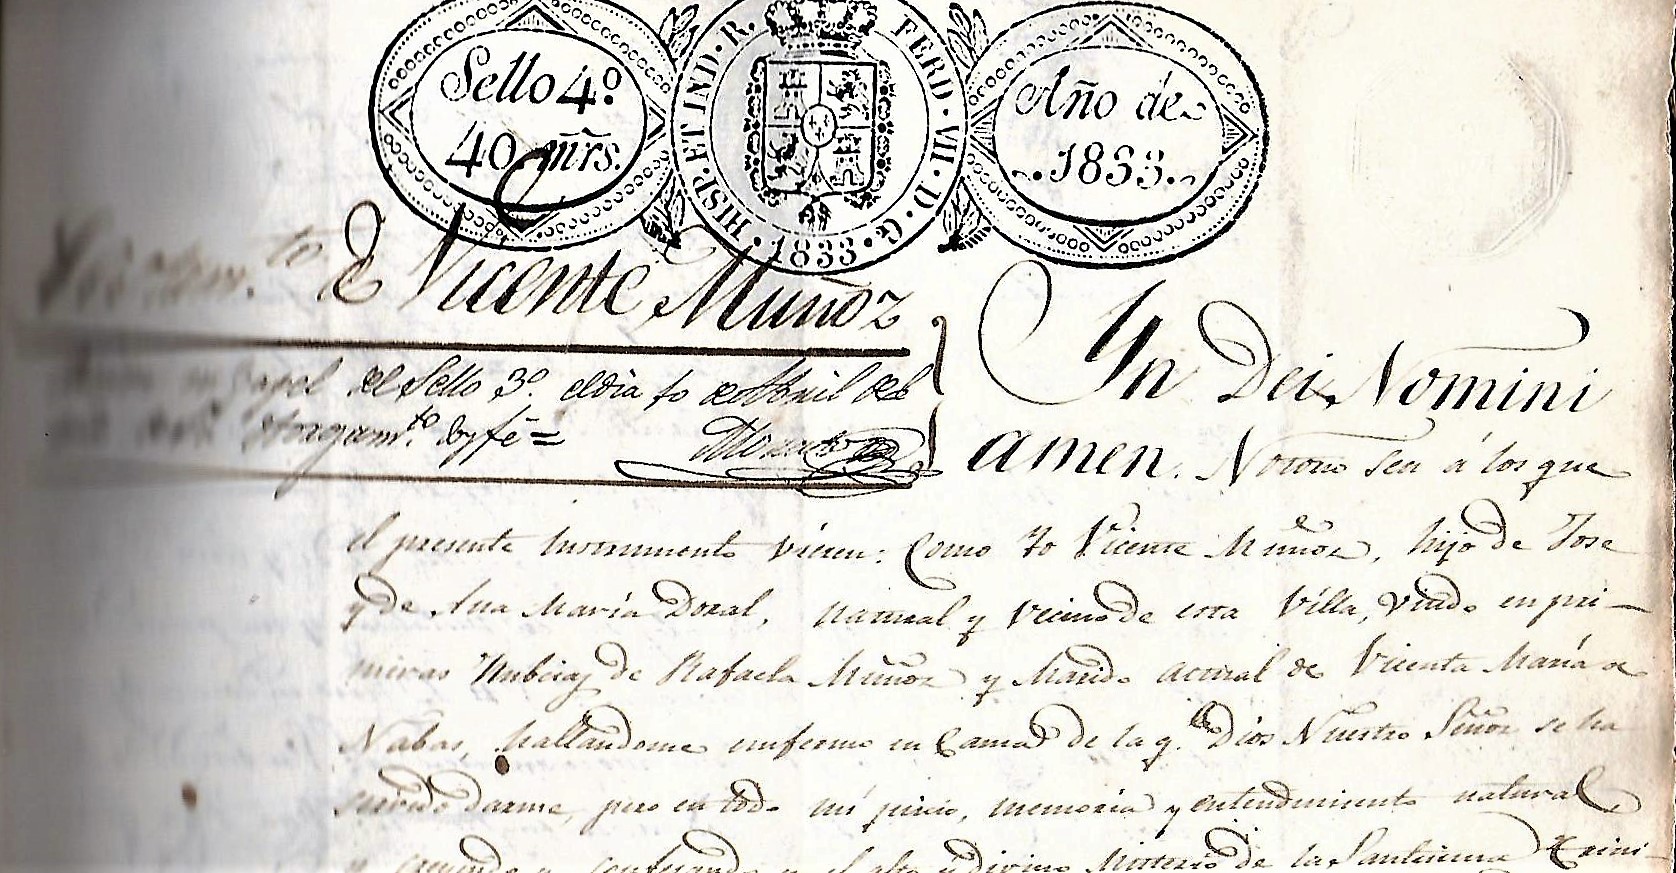 Sello 4º
40 mrs.
HISP. ET IND. R. FERD. VII. D. G.
1833
Año de
1833.
Vicente Muñoz
papel del Sello 3º. el dia 10 de Abril del
otorgam.to doy fé =
In Dei Nomini
amen. Notorio sea á los que
el presente Instrumento vieren: Como Yo Vicente Muñoz, hijo de Jose
y de Ana María Doral, natural y vecino de esta Villa, viudo en pri-
meras Nubcias de Rafaela Muñoz y Marido actual de Vicenta María de
Nabas, hallandome emfermo en Cama de la q.e Dios Nuestro Señor se ha
servido darme, pero en todo mi juicio, memoria y entendimiento natural,
y creiendo y confesando el alto y divino Misterio de la Santisima Trini-